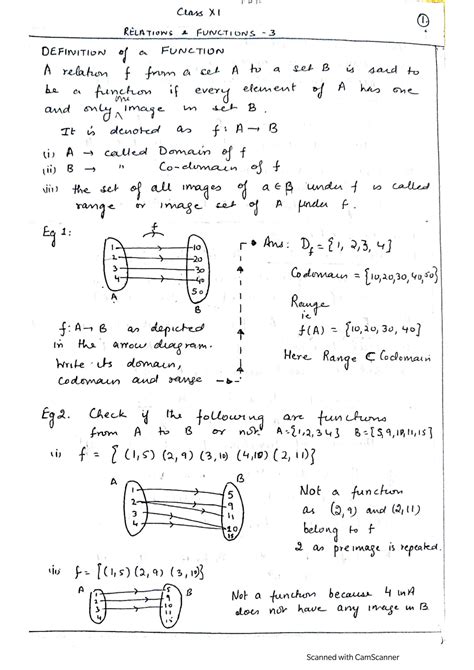 Class XI
1
RELATIONS & FUNCTIONS - 3
DEFINITION of a FUNCTION
A relation f from a set A to a set B is said to
be a function if every element of A has one
and only one image in set B.
It is denoted as f: A → B
(i) A → called Domain of f
(ii) B → " Co-domain of f
(iii) the set of all images of a ∈ B under f is called
range or image set of A under f.
Eg 1:
f
1
2
3
4
A
10
20
30
40
50
B
f: A → B as depicted
in the arrow diagram.
Write its domain,
codomain and range
Ans: Df = {1, 2, 3, 4}
Codomain = {10,20,30,40,50}
Range
ie
f(A) = {10,20,30,40}
Here Range ⊂ Codomain
Eg 2. Check if the following are functions
from A to B or not. A={1,2,3,4} B={5,9,10,11,15}
(i) f = { (1,5) (2,9) (3,10) (4,10) (2,11)}
A
1
2
3
4
B
5
9
11
10
15
Not a function
as (2,9) and (2,11)
belong to f
2 as preimage is repeated.
(ii) f = {(1,5) (2,9) (3,10)}
A
1
2
3
4
B
5
9
10
11
15
Not a function because 4 in A
does not have any image in B
Scanned with CamScanner